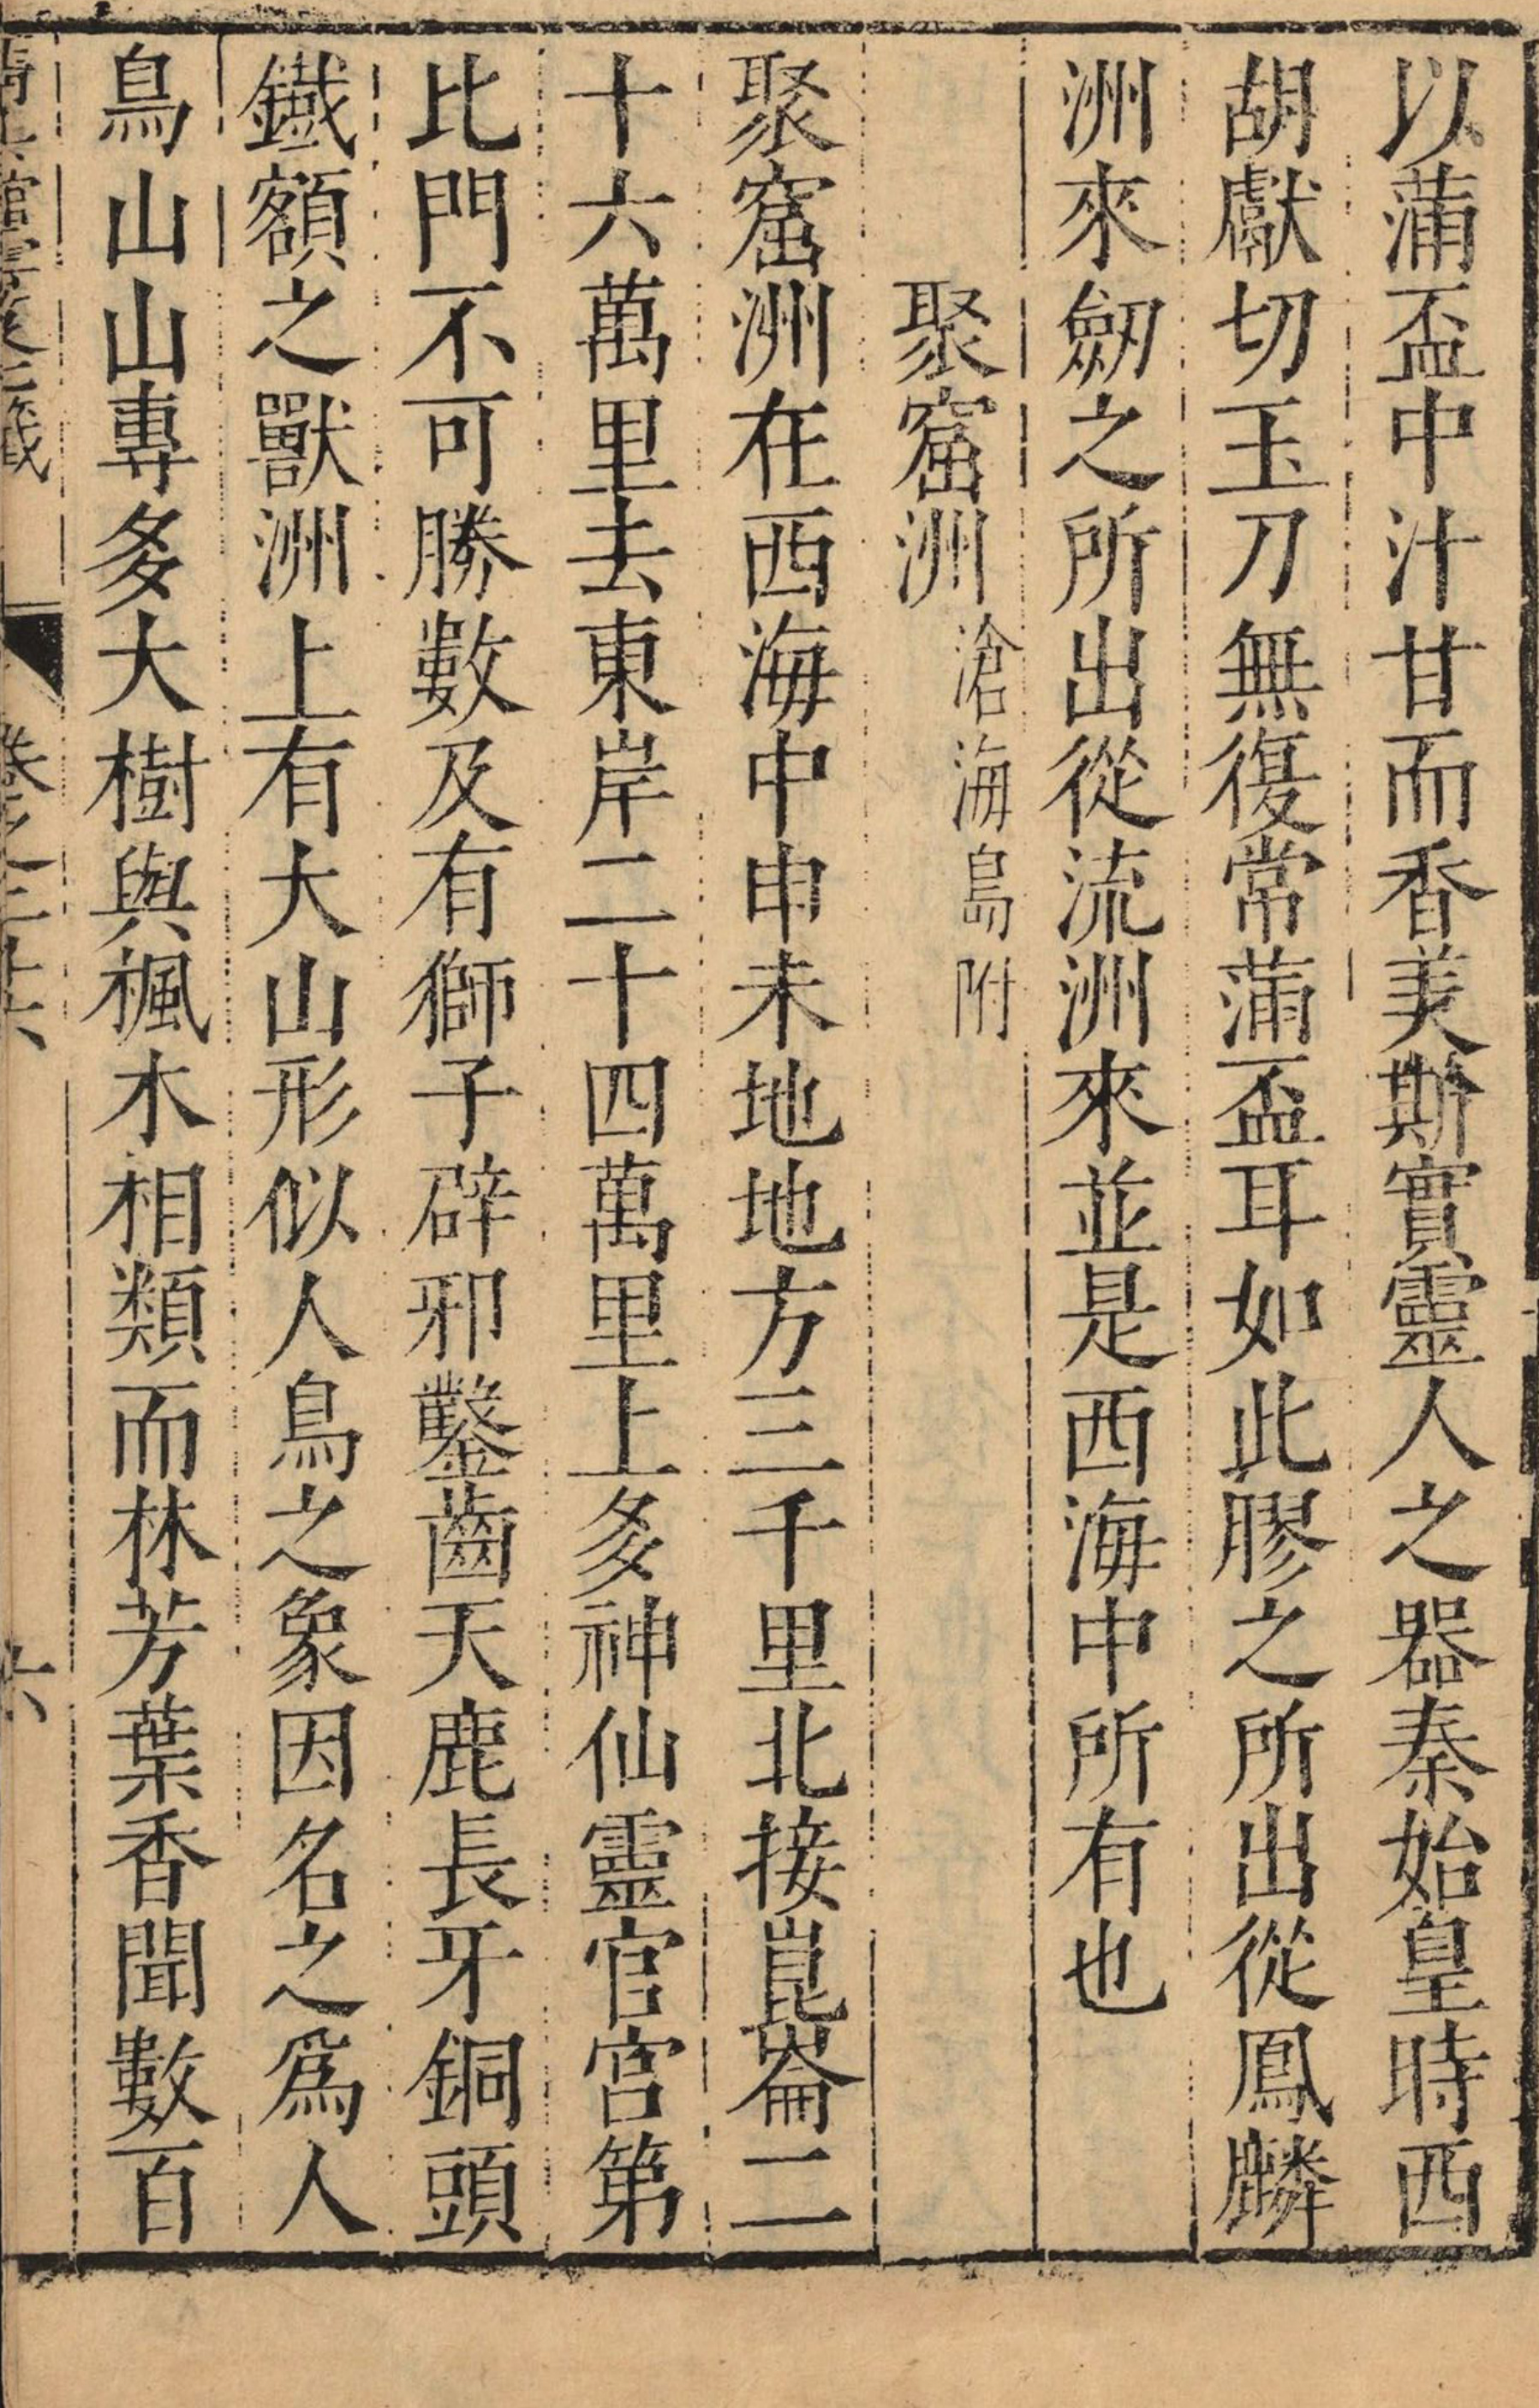 以蒲盃中汁甘而香美斯實靈人之器秦始皇時西
胡獻切玉刀無復常蒲盃耳如此膠之所出從鳳麟
洲來劒之所出從流洲來並是西海中所有也
聚窟洲滄海島附
聚窟洲在西海中申未地地方三千里北接崑崙二
十六萬里去東岸二十四萬里上多神仙靈官宮第
比門不可勝數及有獅子辟邪鑿齒天鹿長牙銅頭
鐵額之獸洲上有大山形似人鳥之象因名之爲人
鳥山山專多大樹與楓木相類而林芳葉香聞數百
卷之二十六
六